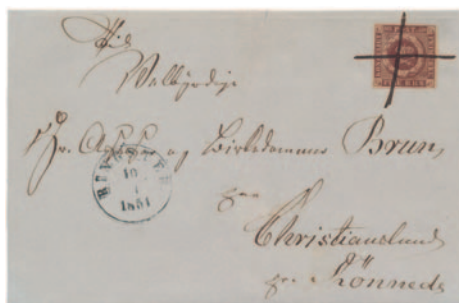 Velbyrdige
Hr. og Birkedommer Brun,
Christianslund
pr. Rönnede
RINGSTED
10
7
1851